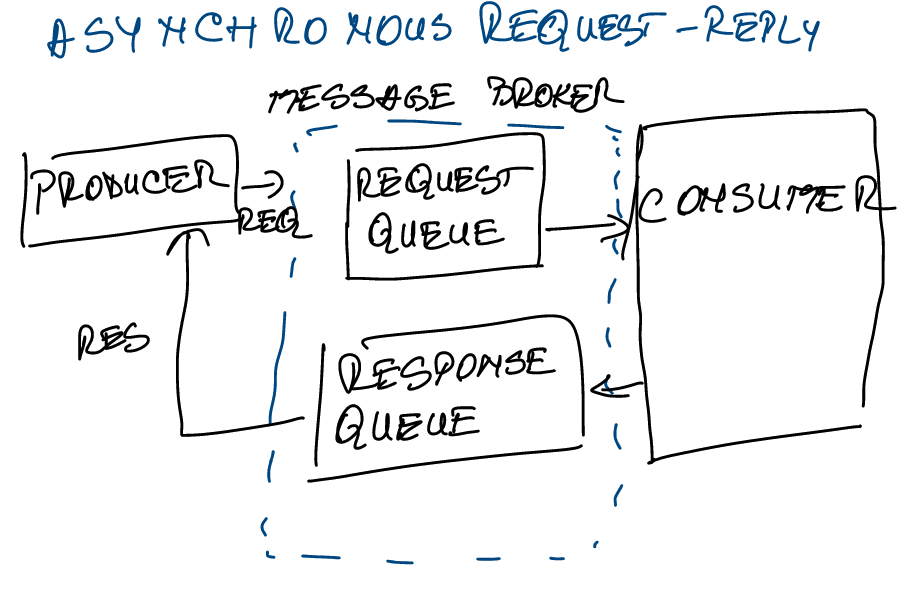 ASYNCHRONOUS REQUEST-REPLY
MESSAGE BROKER
PRODUCER
REQ
REQUEST
QUEUE
CONSUMER
RES
RESPONSE
QUEUE